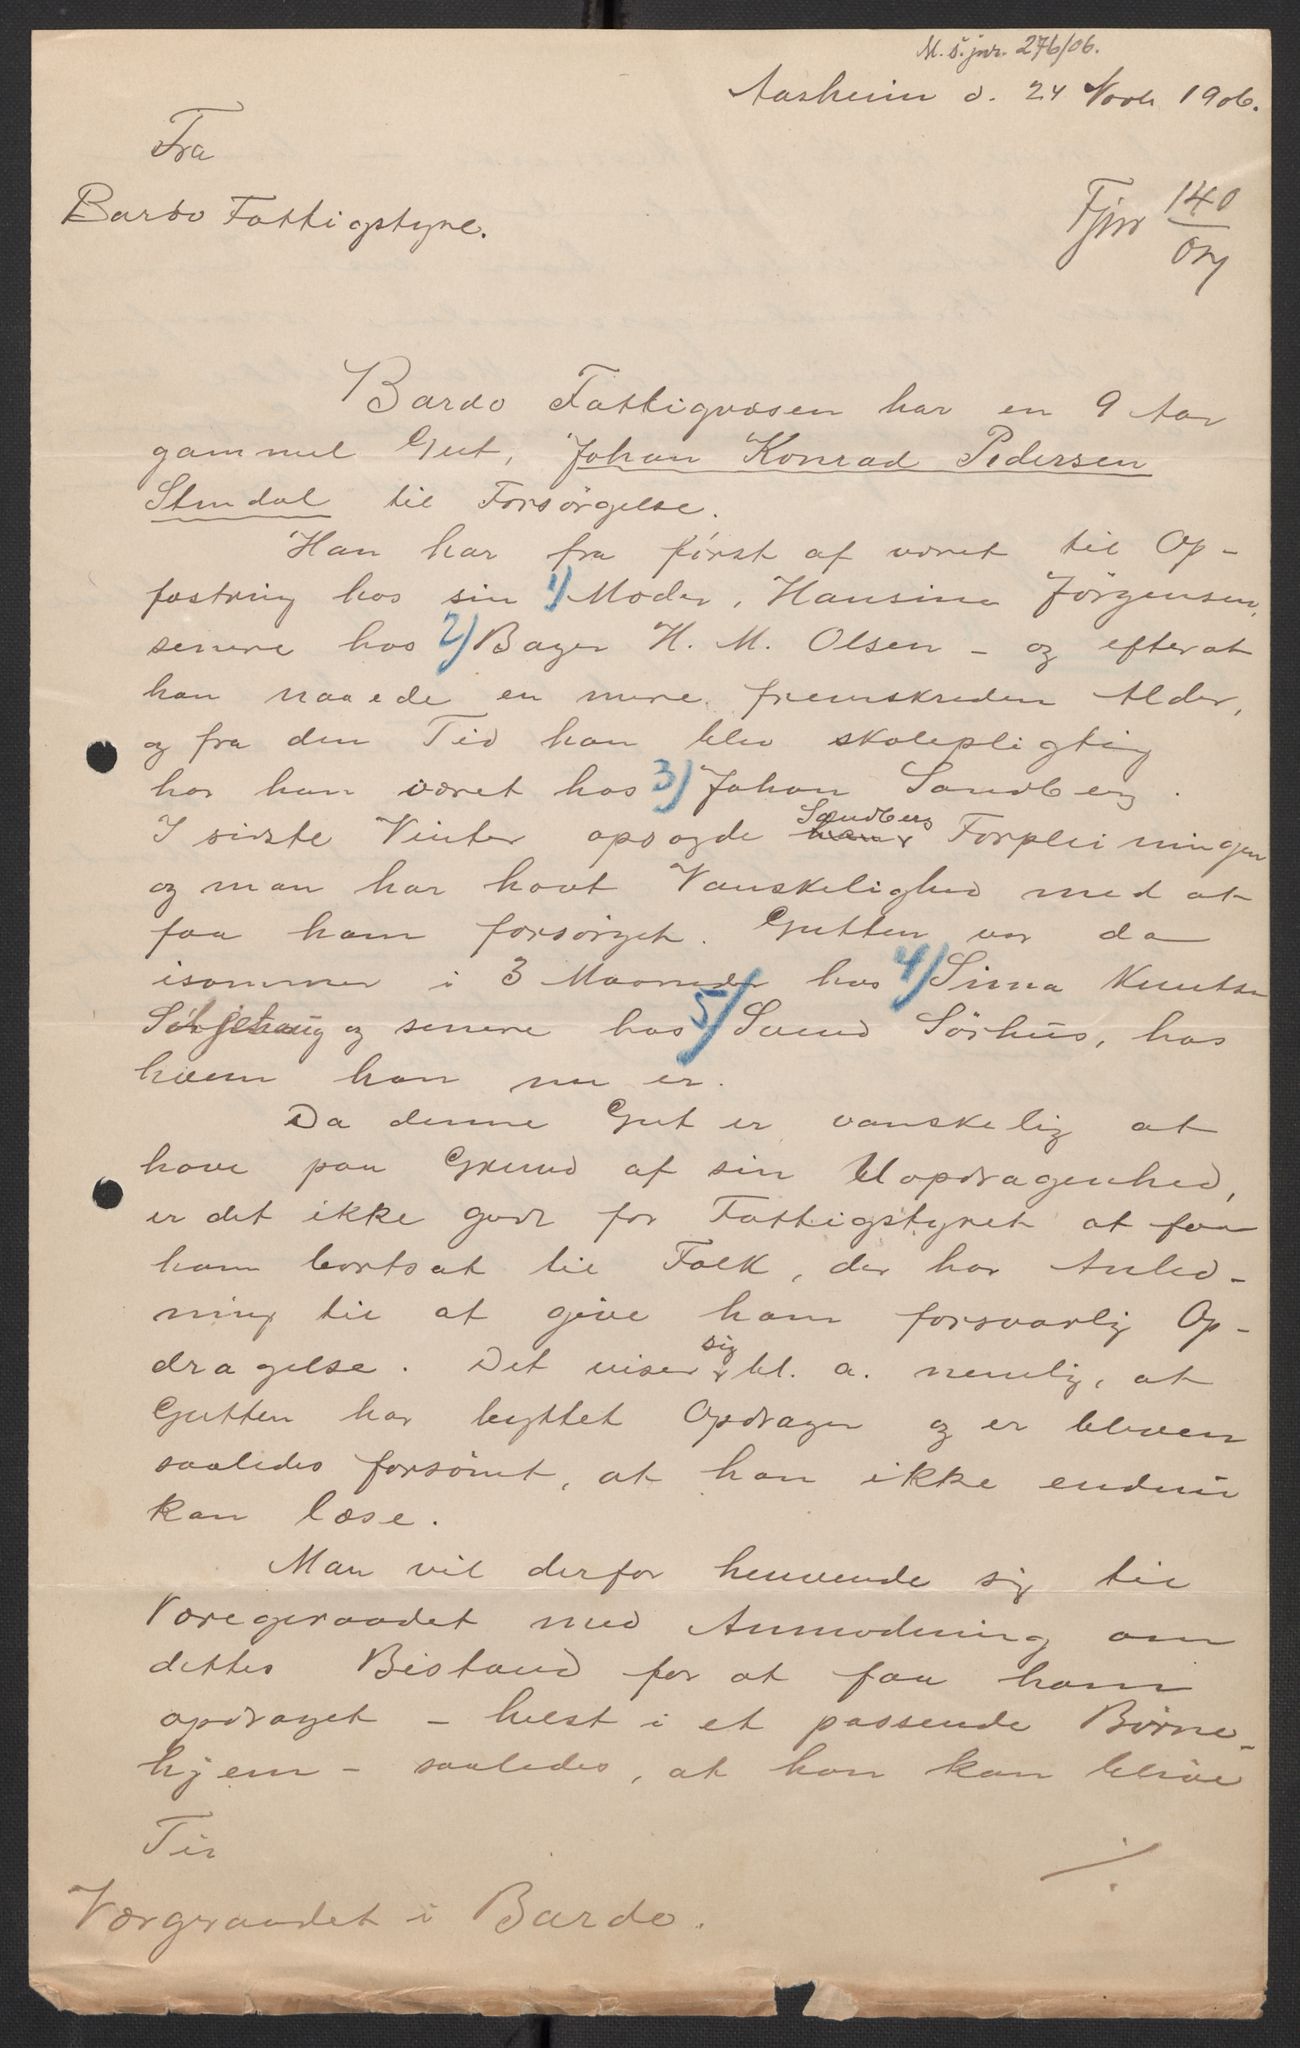 M. S. jnr. 276/06.
Aasheim d. 24 Novb 1906.
Fra
Bardo Fattigstyre.
Fjnr 140/07
Bardo Fattigvæsen har en 9 Aar
gammel Gut, Johan Konrad Pedersen
Stendal til Forsörgelse.
Han har fra först af været til Op-
fostring hos sin 1) Moder, Hansine Jörgensen,
senere hos 2) Bager H. M. Olsen - og efterat
han naaede en mere fremskreden Alder,
og fra den Tid han blev skolepligtig
har han været hos 3) Johan Sandberg.
I sidste Vinter opsagde Sandberg Forpleiningen
og man har havt Vanskelighed med at
faa ham forsörget. Gutten var da
isommer i 3 Maaneder hos 4) Sina Knutsen
og senere hos 5) Svend Sörhus, hos
hvem han nu er.
Da denne Gut er vanskelig at
have paa Grund af sin Uopdragenhed,
er det ikke godt for Fattigstyret at faa
ham bortsat til Folk, der har Anled-
ning til at give ham forsvarlig Op-
dragelse. Det viser sig bl. a. nemlig, at
Gutten har byttet Opdrager og er bleven
saaledes forsömt, at han ikke endnu
kan læse.
Man vil derfor henvende sig til
Værgeraadet med Anmodning om
dettes Bistand for at faa ham
opdraget - helst i et passende Börne-
hjem - saaledes, at han kan blive
Til
Værgeraadet i Bardo.
./.